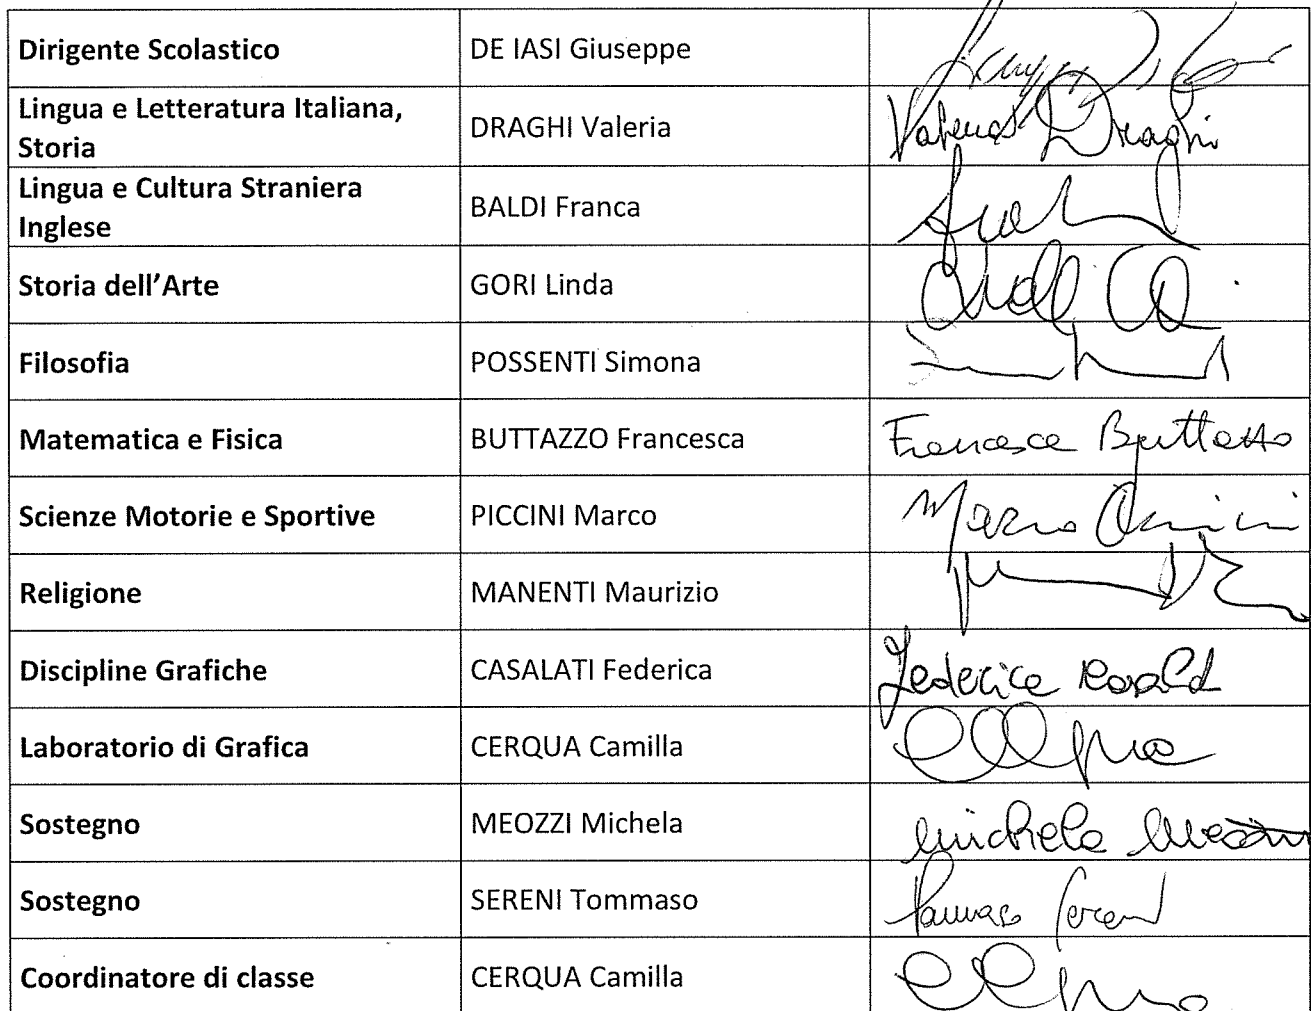 Dirigente Scolastico DE IASI Giuseppe
Lingua e Letteratura Italiana,
Storia DRAGHI Valeria Valeria Draghi
Lingua e Cultura Straniera
Inglese BALDI Franca
Storia dell'Arte GORI Linda
Filosofia POSSENTI Simona
Matematica e Fisica BUTTAZZO Francesca Francesca Buttazzo
Scienze Motorie e Sportive PICCINI Marco Marco Piccini
Religione MANENTI Maurizio
Discipline Grafiche CASALATI Federica Federica
Laboratorio di Grafica CERQUA Camilla
Sostegno MEOZZI Michela Michela Meozzi
Sostegno SERENI Tommaso Tommaso Sereni
Coordinatore di classe CERQUA Camilla